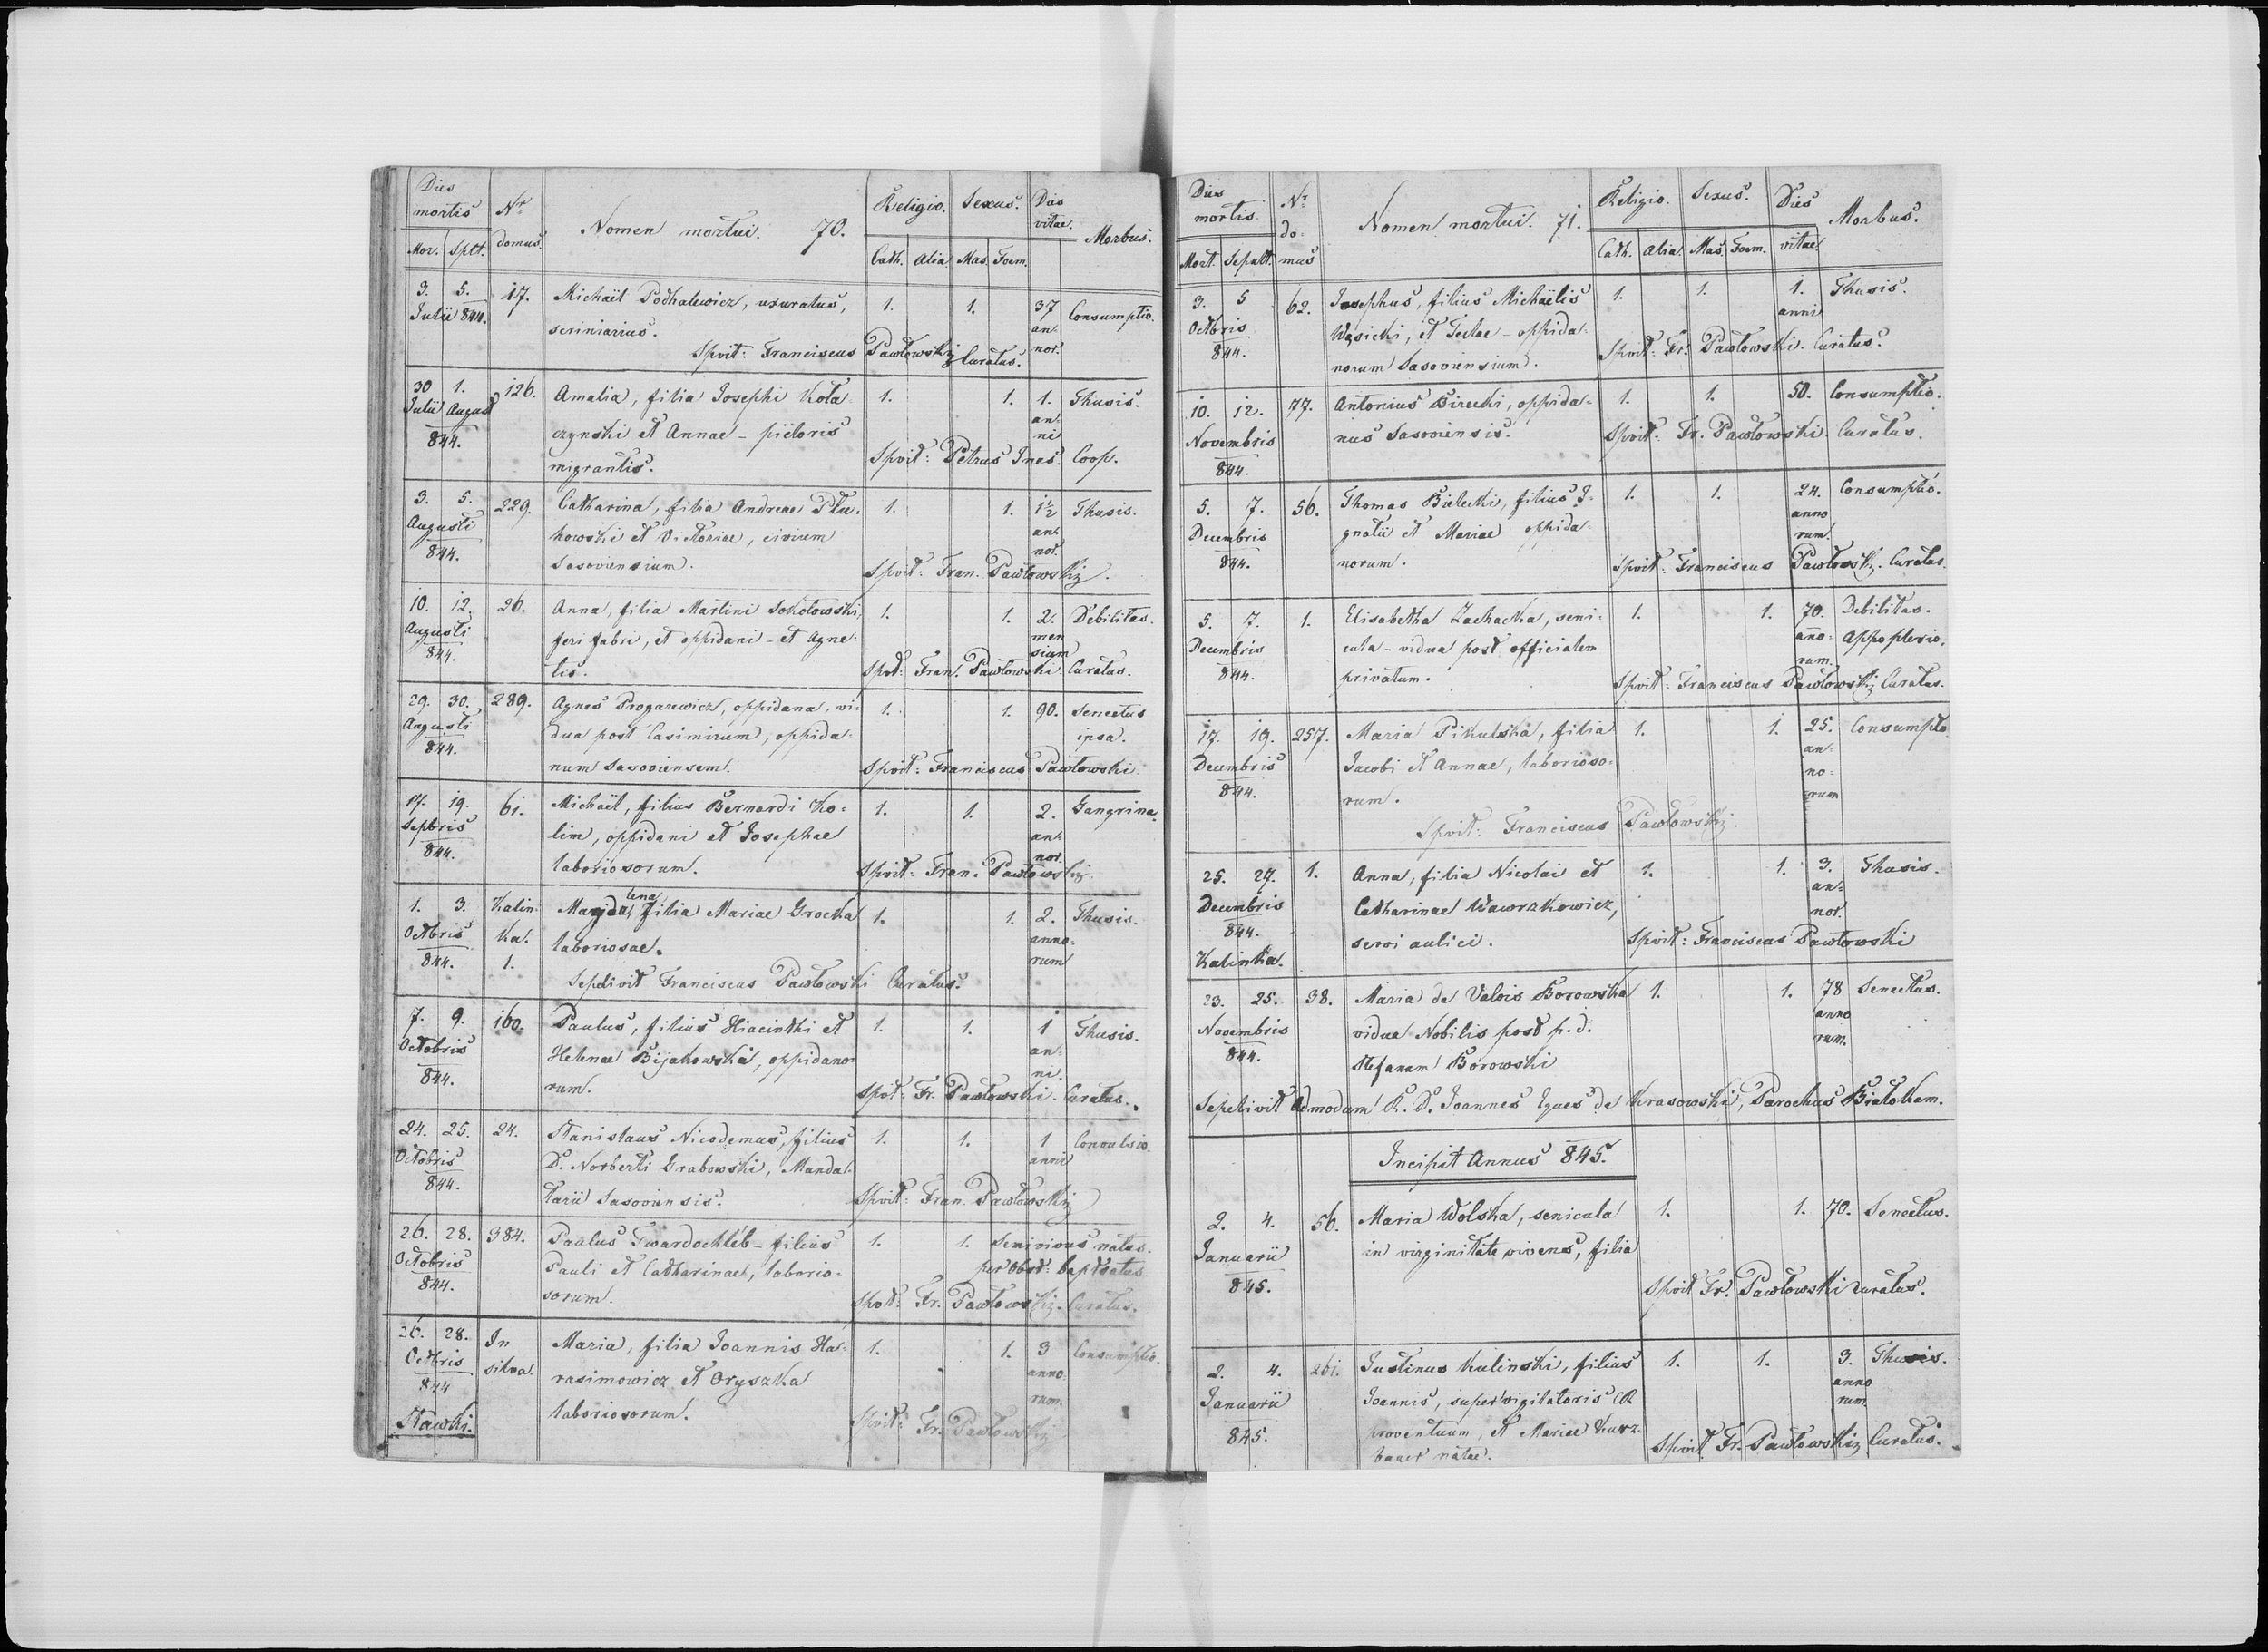 Dies mortis Nr domus Nomen mortui. 70. Religio. Sexus. Dies vitae. Morbus.
Mor. Splt. Cath. Alia Mas. Foem.
3. 5. 17. Michaël Podhalewicz, uxuratus, 1. 1. 37 Consumptio.
Julii 844. scriniarius. an-
Spvit: Franciscus Pawłowski Curatus. nor.
30 1. 126. Amalia, filia Josephi Kola- 1. 1. 1. Thusis.
Julii August czynski et Annae – pictoris an-
844. migrantis. ni
Spvit: Petrus Ines. Coop.
3. 5. 229. Catharina, filia Andreae Plu- 1. 1. 1½ Thusis.
Augusti howski et Victoriae, civium an-
844. Sasoviensium. nor.
Spvit: Fran. Pawłowski.
10. 12. 26. Anna, filia Martini Sokołowski, 1. 1. 2. Debilitas.
Augusti feri fabri, et oppidani – et Agne- men
844. tis. sium
Spvt: Fran. Pawłowski Curatus.
29. 30. 289. Agnes Progarewicz, oppidana, vi- 1. 1. 90. Senectus
Augusti dua post Casimirum, oppida- ipsa.
844. num Sasoviensem. Spvit: Franciscus Pawłowski.
17. 19. 61. Michaël, filius Bernardi Ko- 1. 1. 2. Gangrina.
Sepbris lim, oppidani et Josephae an-
844. laboriosorum. nor.
Spvit: Fran. Pawłowski.
1. 3. Kalin- Magdalena, filia Mariae Grocka 1. 1. 2. Thusis.
Octbris ka. laboriosae. anno-
844. 1. rum
Sepelivit Franciscus Pawłowski Curatus.
7. 9. 160. Paulus, filius Hiacinthi et 1. 1. 1 Thusis.
Octobris Helenae Bijakowska, oppidano- an-
844. rum. ni.
Spvit: Fr. Pawłowski. Curatus.
24. 25. 24. Stanislaus Nicodemus, filius 1. 1. 1 Convulsio.
Octobris D. Norberti Grabowski, Manda- anni
844. tarii Sasoviensis. Spvit: Fran. Pawłowski
26. 28. 384. Paulus Twardochleb – filius 1. 1. Semivivus natus.
Octobris Pauli et Catharinae, laborio- per obst: baptsatus
844. sorum. Spvit: Fr. Pawłowski. Curatus.
26. 28. In Maria, filia Joannis Ha- 1. 1. 3 Consumptio.
Octbris silva. rasimowicz et Oryszka anno
844 laboriosorum. rum.
Stawki. Spvit: Fr. Pawłowski
Dies mortis. Nr do- mus Nomen mortui. 71. Religio. Sexus. Dies vitae Morbus.
Mort. Sepult. Cath. Alia Mas. Foem.
3. 5 62. Josephus, filius Michaëlis 1. 1. 1. Thusis.
Octbris Wąsicki, et Teclae – oppida- anni
844. norum Sasoviensium. Spvit: Fr. Pawłowski. Curatus.
10. 12. 77. Antonius Birecki, oppida- 1. 1. 50. Consumptio.
Novembris nus Sasoviensis. Spvit: Fr. Pawłowski. Curatus.
844.
5. 7. 56. Thomas Bielecki, filius I- 1. 1. 24. Consumptio.
Decembris gnatii et Mariae oppida- anno
844. norum. rum.
Spvit: Franciscus Pawłowski. Curatus.
5. 7. 1. Elisabetha Zachacka, seni- 1. 1. 70. Debilitas.
Decembris cula – vidua post officialem anno- Appoplexio.
844. privatum. rum.
Spvit: Franciscus Pawłowski Curatus.
17. 19. 257. Maria Pikulska, filia 1. 1. 25. Consumptio
Decembris Jacobi et Annae, laborioso- an-
844. rum. no-
rum
Spvit: Franciscus Pawłowski.
25. 27. 1. Anna, filia Nicolai et 1. 1. 3. Thusis.
Decembris Catharinae Wawrzkowicz, an-
844. servi aulici. nor.
Kalinka. Spvit: Franciscus Pawłowski
23. 25. 38. Maria de Valois Borowska 1. 1. 78 Senectus.
Novembris vidua Nobilis post p. d. anno
844. Stefanum Borowski rum.
Sepelivit Admodum R. D. Joannes Eques de Krasowski, Parochus Białokam.
Incipit Annus 845.
2. 4. 56. Maria Wolska, senicula 1. 1. 70. Senectus.
Januarii in virginitate vivens, filia
845. Spvit Fr. Pawłowski Curatus.
2. 4. 261. Justinus Kulinski, filius 1. 1. 3. Thusis.
Januarii Joannis, supervigilatoris CR anno
845. proventuum, et Mariae Kurz- rum.
bauer natae. Spvit Fr. Pawłowski Curatus.